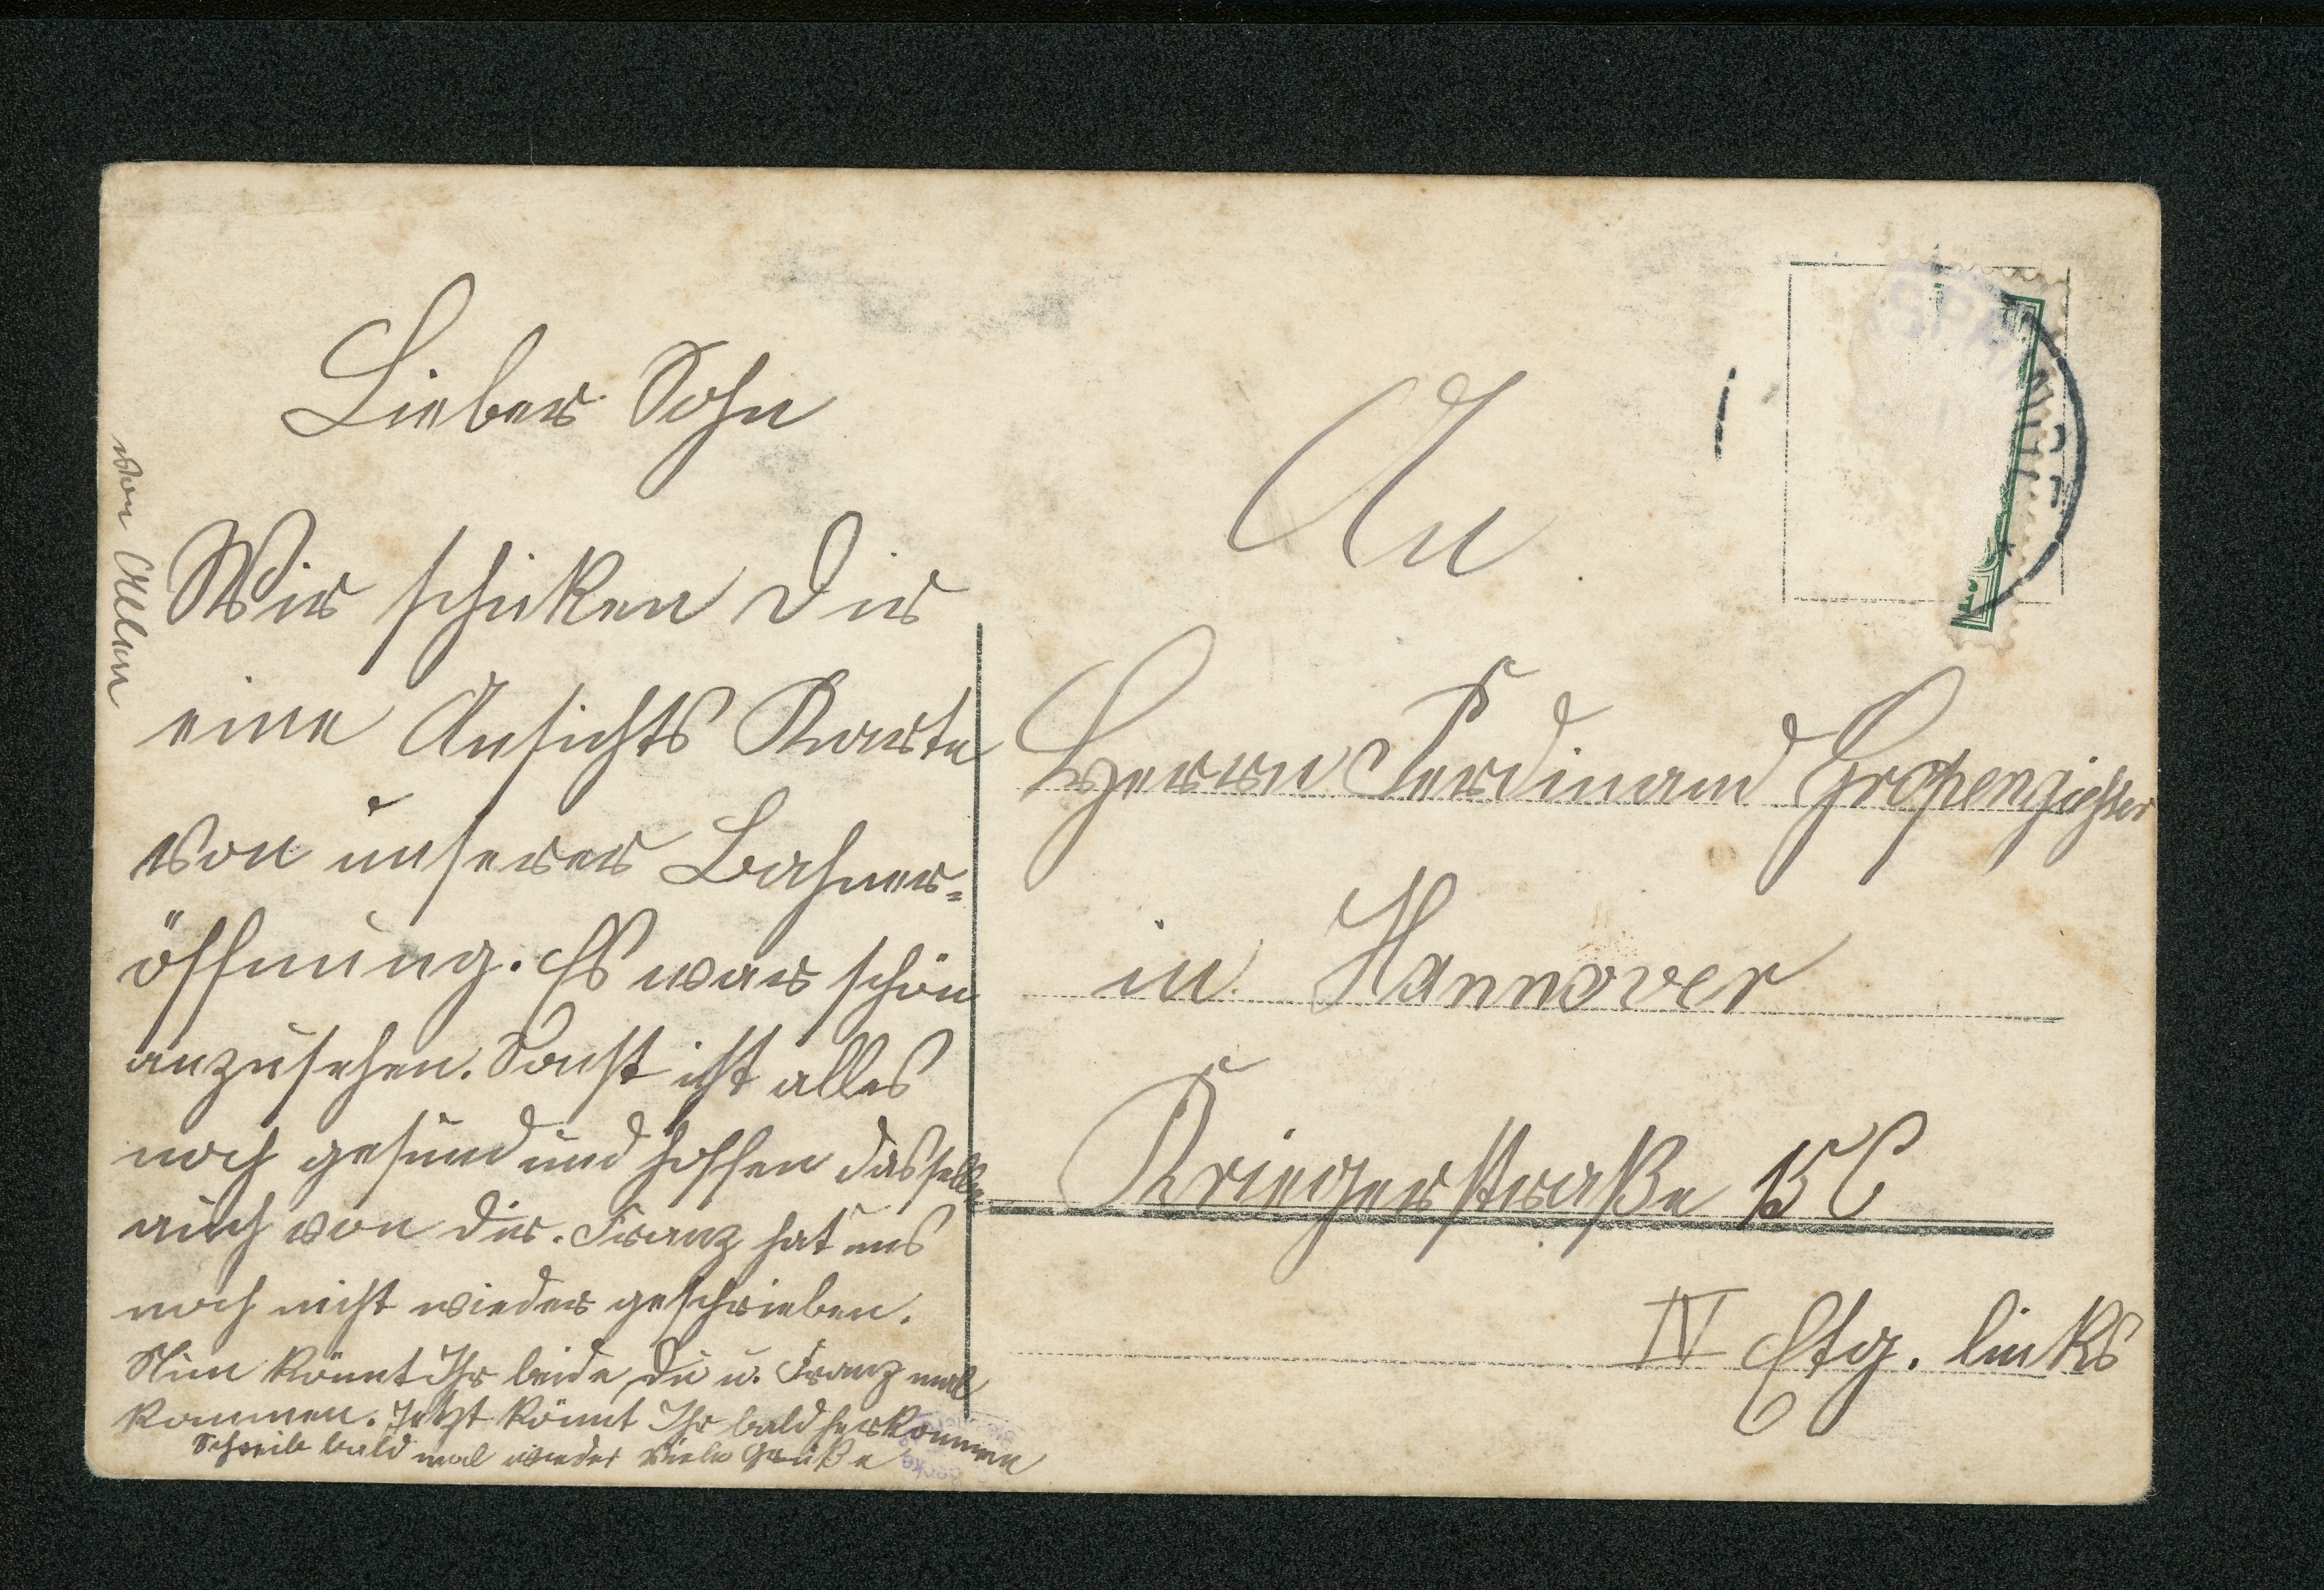 Lieber Sohn
Wir schicken Dir
eine Ansichts Karte
von unserer Bahner=
öffnung. Es war schön
anzusehen. Sonst ist alles
noch gesund und hoffen dasselbe
auch von dir. Franz hat uns
noch nicht wieder geschrieben.
Nun könnt Ihr beide Du u. Franz mal
kommen. Jetzt könnt Ihr bald herkommen
Schreib bald mal wieder viele Grüße
von Allen
An
Herrn Ferdinand Gropengießer
in Hannover
Kriegerstraße 15 C
IV Etg. links